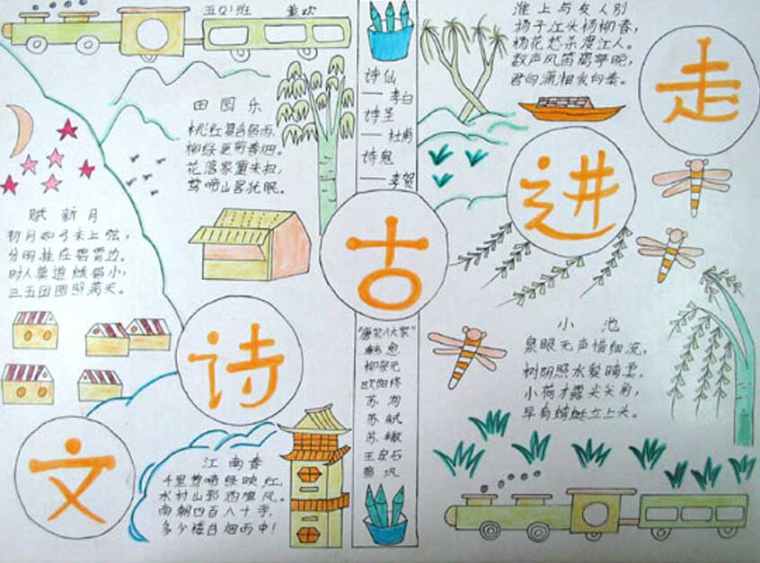 走
进
古
诗
文
田园乐
桃红复含宿雨,
柳绿更带春烟。
花落家童未扫,
莺啼山客犹眠。
赋新月
初月如弓未上弦,
分明挂在碧霄边。
时人莫道蛾眉小,
三五团圆照满天。
江南春
千里莺啼绿映红,
水村山郭酒旗风。
南朝四百八十寺,
多少楼台烟雨中!
诗仙
——李白
诗圣
——杜甫
诗鬼
——李贺
"唐宋八大家"
韩愈
柳宗元
欧阳修
苏洵
苏轼
苏辙
王安石
曾巩
淮上与友人别
扬子江头杨柳春,
杨花愁杀渡江人。
数声风笛离亭晚,
君向潇湘我向秦。
小池
泉眼无声惜细流,
树阴照水爱晴柔。
小荷才露尖尖角,
早有蜻蜓立上头。